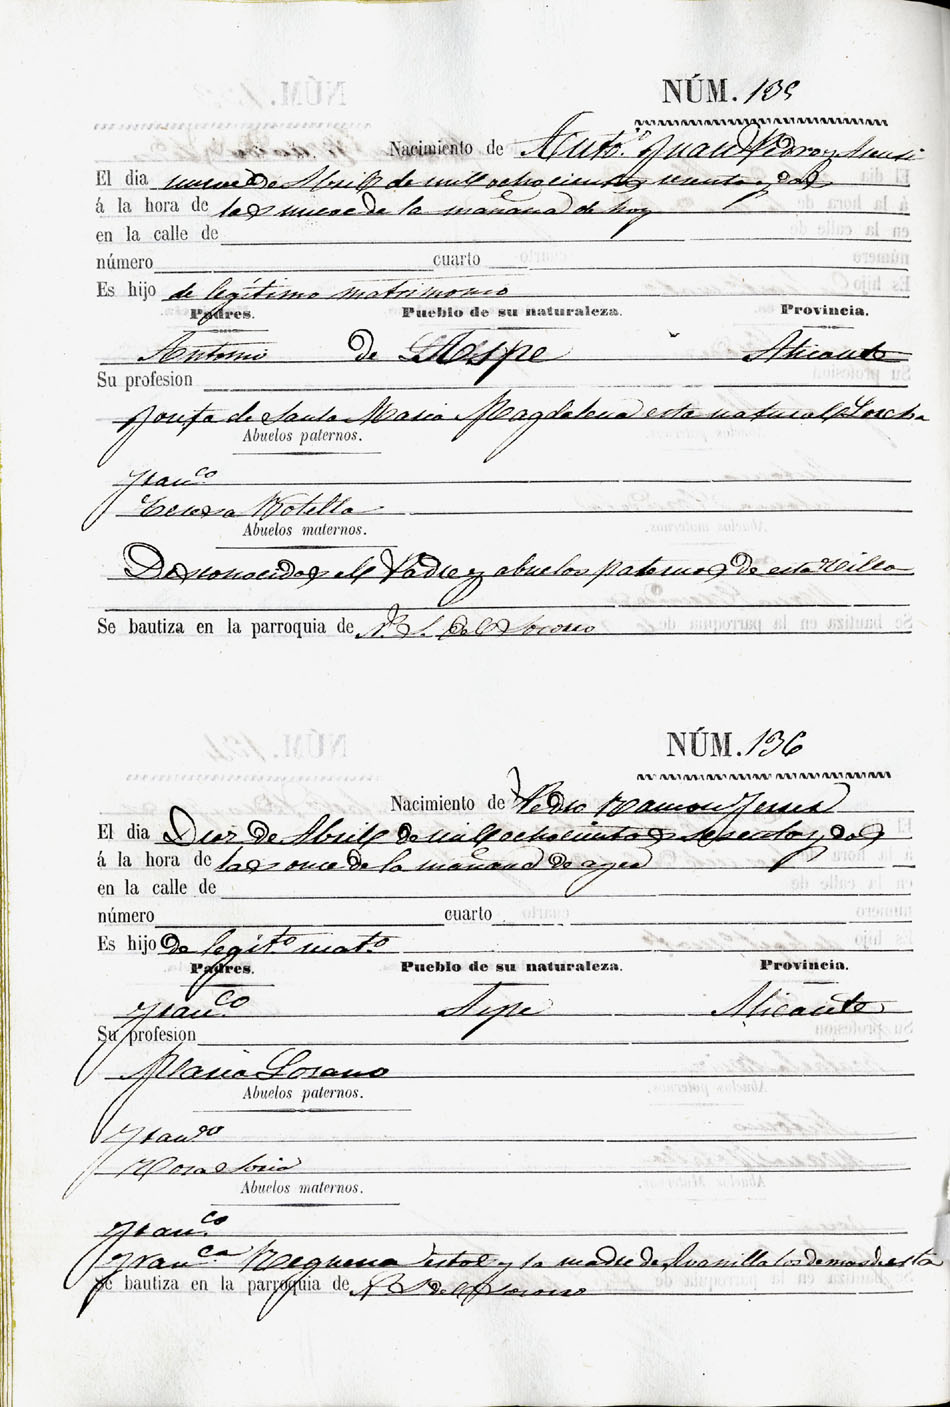 NÚM. 135
Nacimiento de Anto.º Juan Pedro y Asensi
El dia nueve de Abril de mil ochocientos sesenta y dos
á la hora de las nueve de la mañana de hoy
en la calle de
número cuarto
Es hijo de legítimo matrimonio
Padres. Pueblo de su naturaleza. Provincia.
Antonio de Aspe Alicante
Su profesion
Josefa de Santa Maria Magdalena esta natural
Abuelos paternos.
Fran.co
Teresa Botella
Abuelos maternos.
Desconocidos el Padre y abuelos paternos de esta Villa
Se bautiza en la parroquia de N. S. del Socorro
NÚM. 136
Nacimiento de Pedro Ramon
El dia Diez de Abril de mil ochocientos sesenta y dos
á la hora de las once de la mañana de ayer
en la calle de
número cuarto
Es hijo de legit.º mat.º
Padres. Pueblo de su naturaleza. Provincia.
Fran.co Aspe Alicante
Su profesion
Maria Lozano
Abuelos paternos.
Fran.co
Rosa Soria
Abuelos maternos.
Fran.co
Fran.ca Requena y la madre de los demas de esta
Se bautiza en la parroquia de N. S. del Socorro